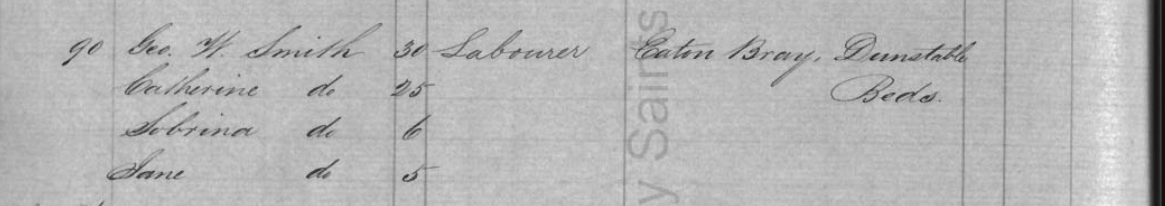 90 Geo. W. Smith 30 Labourer Eaton Bray, Dunstable
Catherine do 25 Beds.
Sobrina do 6
Jane do 5
y Saints